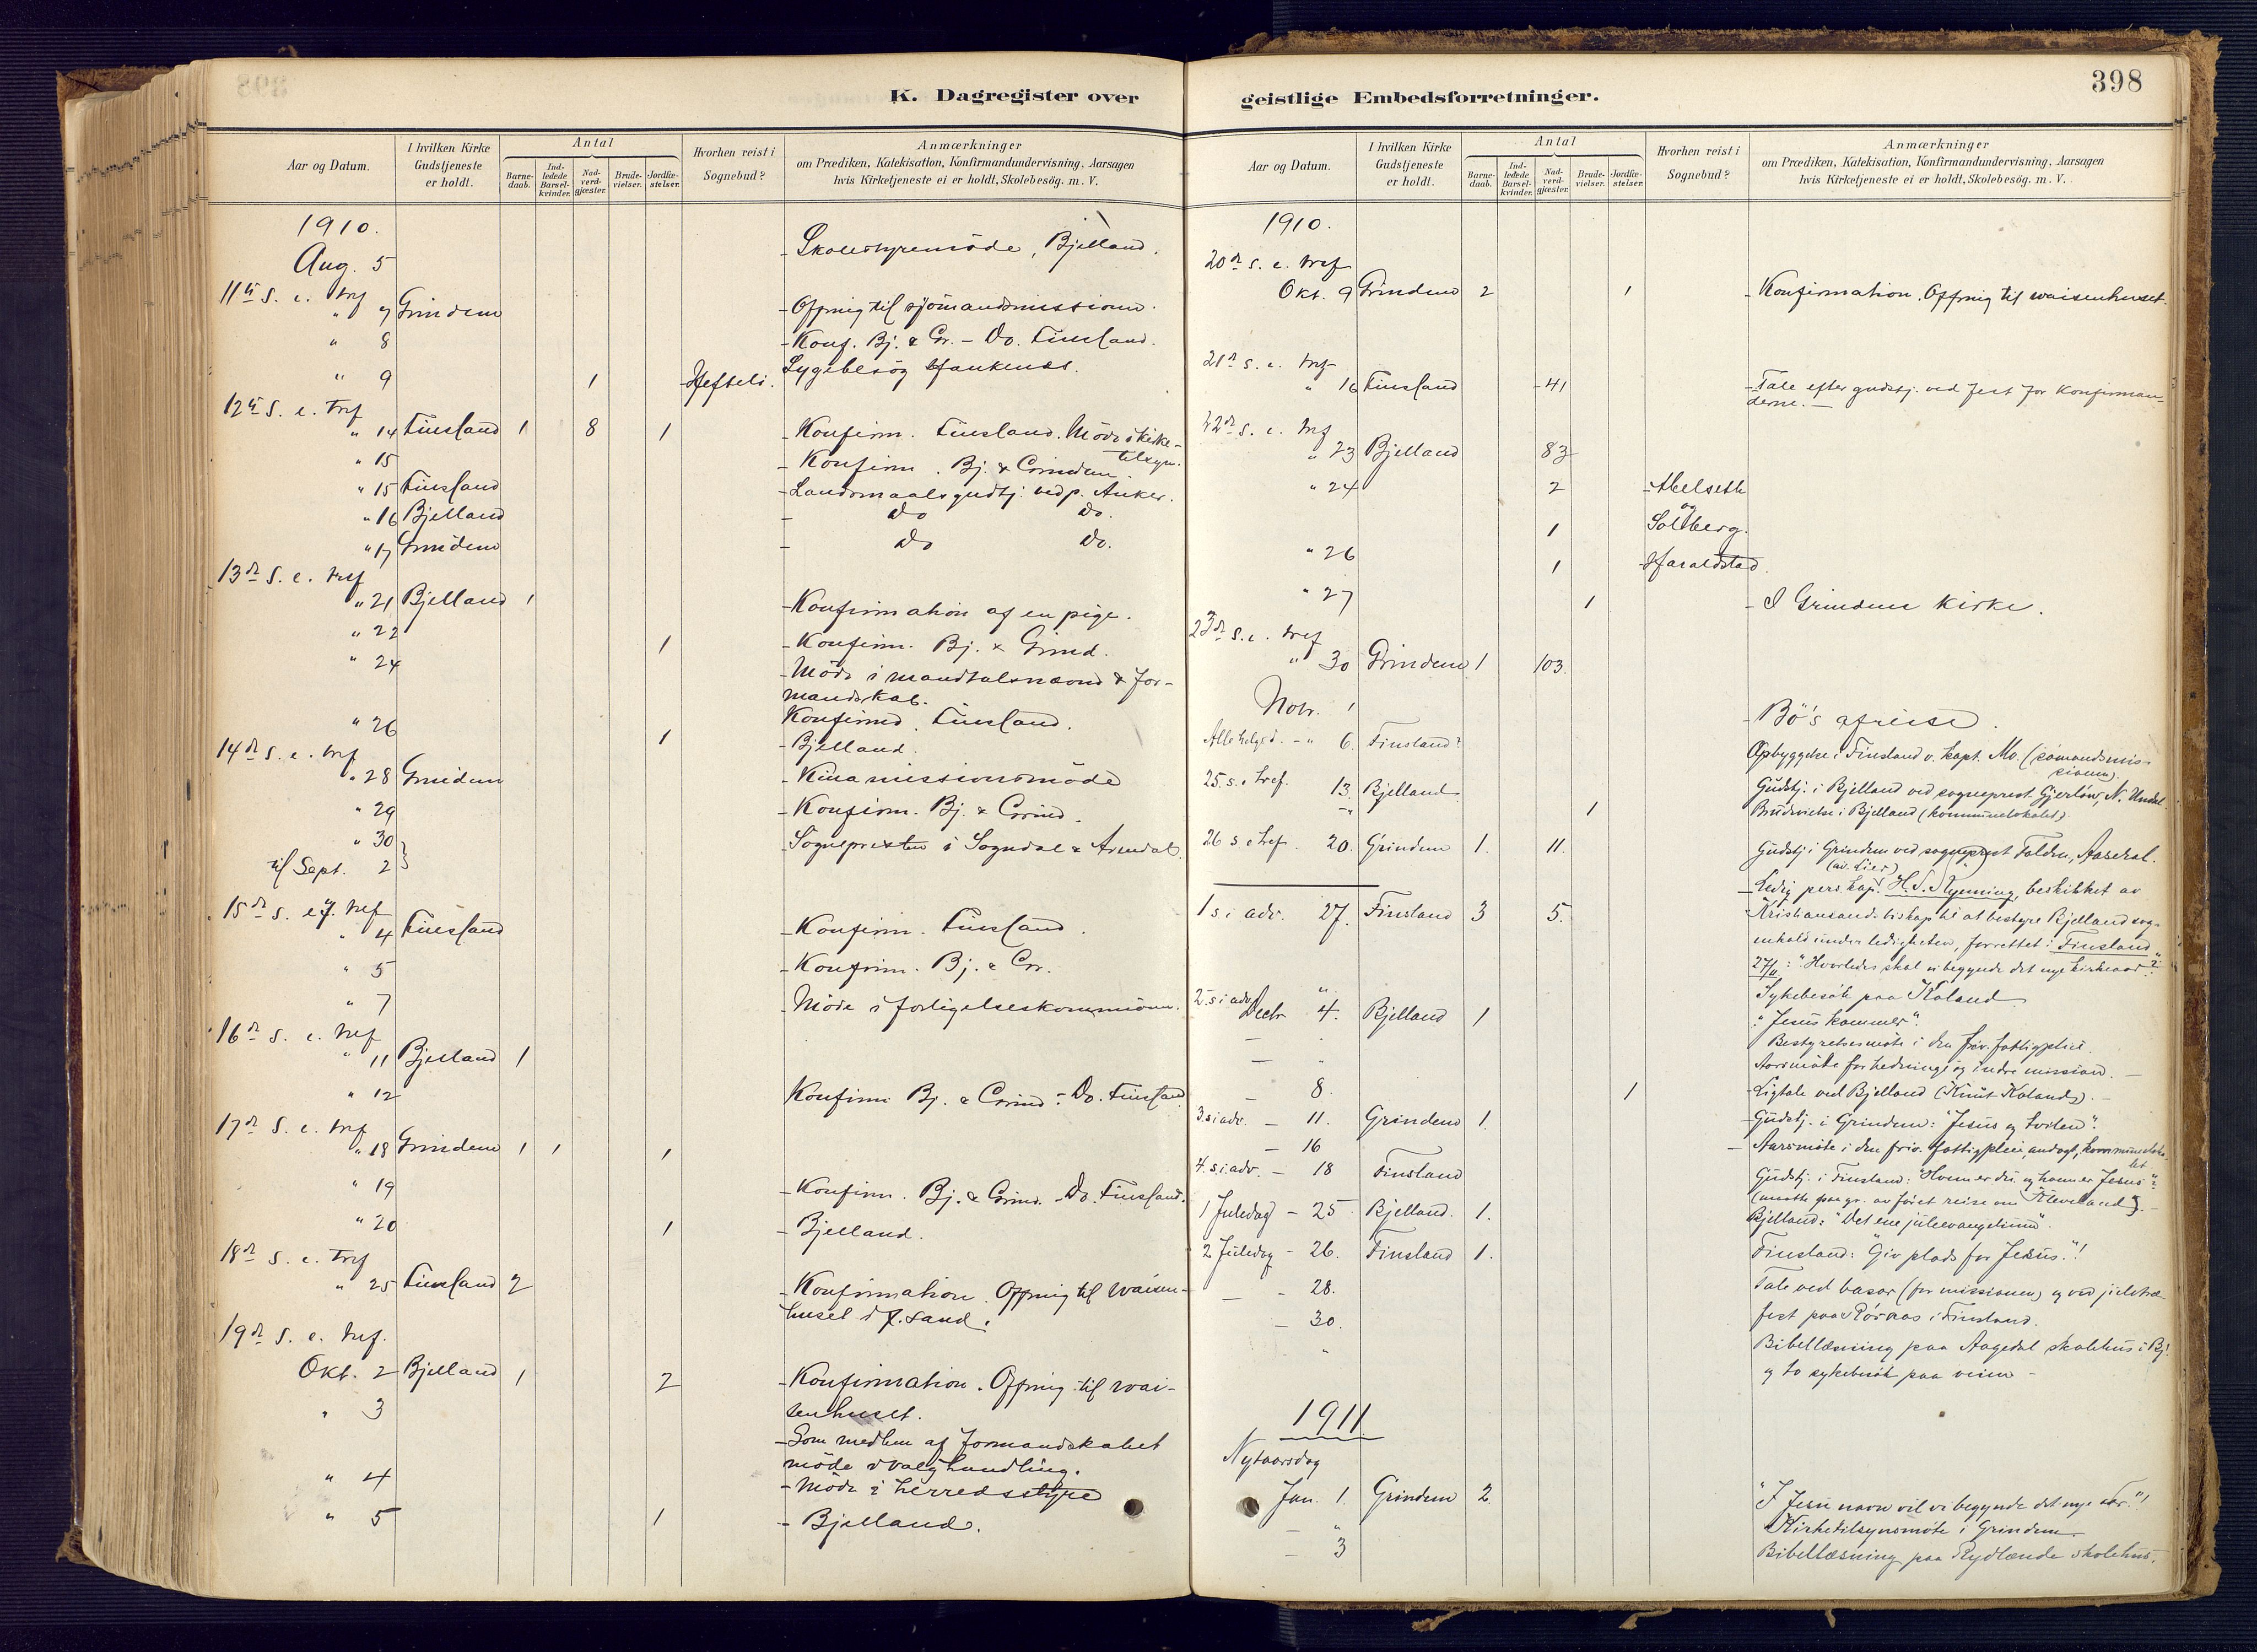 398
K. Dagregister over
geistlige Embedsforretninger.
Aar og Datum.
I hvilken Kirke Gudstjeneste er holdt.
Antal
Barnedaab.
Indledede Barselkvinder.
Nadverdgjæster.
Brudevielser.
Jordfæstelser.
Hvorhen reist i Sognebud?
Anmærkninger
om Prædiken, Katekisation, Konfirmandundervisning, Aarsagen
hvis Kirketjeneste ei er holdt, Skolebesög. m. V.
1910.
Aug. 5 - Skolestyremöde, Bjelland.
11te S. e. tref
" 7 Grindem - Offring til sjömandsmissionen.
" 8 - Konf. Bj. & Gr. - Do. Finsland.
" 9 1 Hefteli. Sygebesög
12te S. e. tref
" 14 Finsland 1 8 1 - Konfirm. Finsland. Möde i kirke-
tilsyn.
" 15 - Konfirm. Bj. & Grindem
" 15 Finsland - Landsmaalsgudtj. ved p. Anker.
" 16 Bjelland - do do.
" 17 Grindem - do do.
13de S. e. tref
" 21 Bjelland 1 - Konfirmation af en pige.
" 22 1 - Konfirm. Bj. & Grind.
" 24 - Möde i mandtalsnævnd & for-
mandskab.
" 26 Konfirm. Finsland.
1 - Bjelland.
14de S. e. tref
" 28 Grindem - Kinamissionsmöde
" 29 - Konfirm. Bj. & Grind.
" 30
til Sept. 2 } - Sognepresten i Sogndal & Arendal.
15de S. e. tref
" 4 Finsland - Konfirm. Finsland.
" 5 - Konfirm. Bj. & Gr.
" 7 - Möde i forligelseskommission.
16de S. e. tref
" 11 Bjelland 1
" 12 Konfirm Bj. & Grind - Do. Finsland
17de S. e. tref
" 18 Grindem 1 1 1
" 19 - Konfirm. Bj. & Grind. - Do. Finsland.
" 20 1 - Bjelland.
18de S. e. tref
" 25 Finsland 2 - Konfirmation. Offring til waisen-
huset i X.sand.
19de S. e. tref.
Okt. 2 Bjelland 1 2 - Konfirmation. Offring til wai-
senhuset.
" 3 - Som medlem af formandskabet
möde i valghandling.
" 4 - Möde i herredsstyre
" 5 1 - Bjelland.
Aar og Datum.
I hvilken Kirke Gudstjeneste er holdt.
Antal
Barnedaab.
Indledede Barselkvinder.
Nadverdgjæster.
Brudevielser.
Jordfæstelser.
Hvorhen reist i Sognebud?
Anmærkninger
om Prædiken, Katekisation, Konfirmandundervisning, Aarsagen
hvis Kirketjeneste ei er holdt, Skolebesög. m. V.
1910.
20de S. e. tref
Okt. 9 Grindem 2 1 - Konfirmation. Offring til waisenhuset.
21de S. e. tref
" 16 Finsland 41 - Tale efter gudstj. ved fest for konfirman-
derne. -
22de S. e. tref
" 23 Bjelland 83
" 24 2 Abelseth
og
1 Solberg.
" 26 1 Haraldstad.
" 27 1 - I Grindem kirke.
23de S. e. tref
" 30 Grindem 1 103
Novr. 1 - Bö's afreise.
Allehelgd. - " 6. Finsland? Opbyggelse i Finsland v. kapt. Mo. (sömandsmis-
sionen).
25. s. e. tref. 13. Bjelland Gudstj. i Bjelland ved sogneprest Gjerlöw, N. Undal.
- " 1 Brudevielse i Bjelland (kommunelokalet).
26 s e tref. 20. Grindem 1. 11. Gudstj i Grindem ved sogneprest Falden, Aaseral.
(av Lier)
- Ledig pers. kap. H. S. Nynning, beskikket av
1 s i adv. 27. Finsland 3 5. Kristiansands biskop til at bestyre Bjelland sog-
nekald under ledigheten, forrettet i Finsland
27/11: "Hvorledes skal vi begynde det nye kirkeaar"?
" Sykebesök paa Kaland
2. s i adv Decbr 4. Bjelland 1 "Jesus kommer".
- " Bestyrelsesmöte i den friv. fattigpleie.
- " Aarsmöte for hedning og indre mission. -
- 8. 1 - Ligtale ved Bjelland (Knut Koland). -
3. s i adv. - 11. Grindem 1. Gudstj. i Grindem: "Jesus og tvilen".
- 16 - Aarsmöte i den friv. fattigpleie, andagt, kommuneloka-
let
4. s. i adv. - 18 Finsland Gudstj. i Finsland: "Hvem er du og hvem er Jesus"?
(maatte paa gr. av föret reise om Kleveland). -
1 Juledag - 25 Bjelland. 1. Bjelland: "Det ene juleevangelium".
2 Juledag - 26. Finsland 1. Finsland: "Giv plads for Jesus"!
- - 28. Tale ved basar (for missionen) og ved juletræ-
- 30. fest paa Rösaas i Finsland.
" Bibellæsning paa Aagedal skolehus i Bj.
og to sykebesök paa veien -
1911
Nytaarsdag
Jan. 1. Grindem 2. "I Jesu navn vil vi begynde det nye Aar"!
- " Kirketilsynsmöte i Grindem
- 3 Bibellæsning paa Rydlende skolehus.